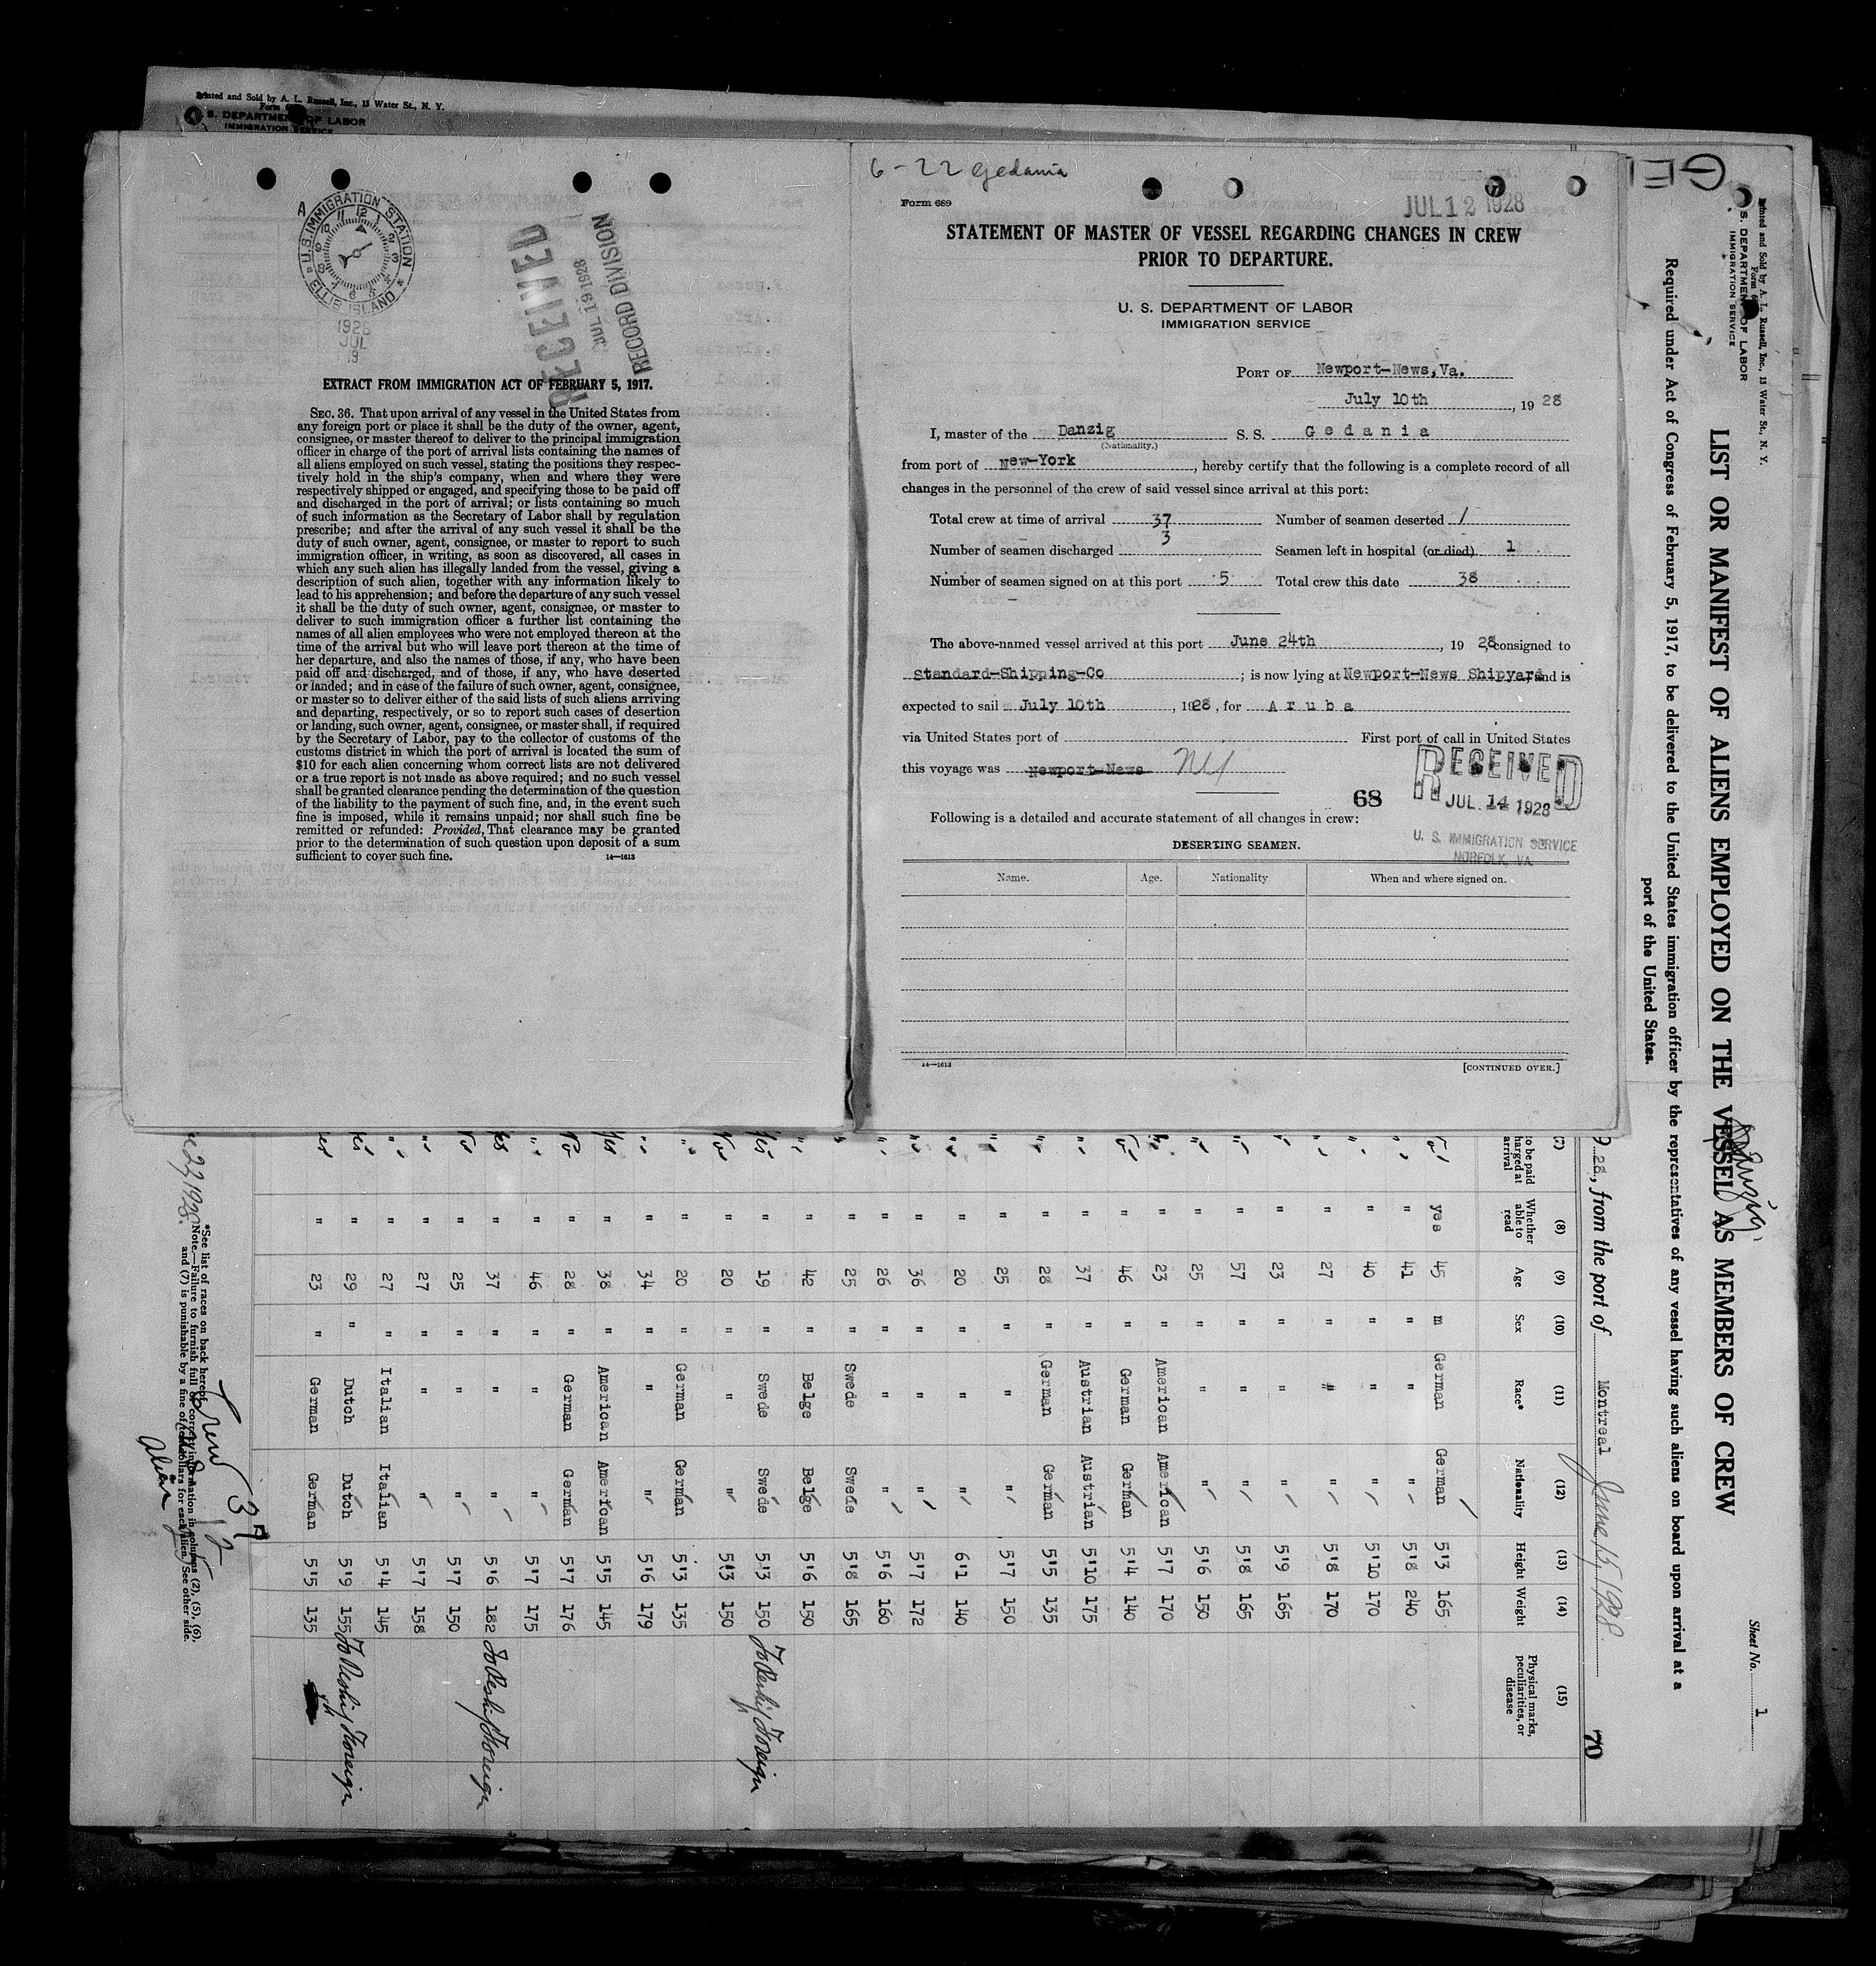 Printed and Sold by A. L. Russell, Inc., 13 Water St., N. Y.
U. S. DEPARTMENT OF LABOR
IMMIGRATION SERVICE
A
U.S. IMMIGRATION STATION
ELLIS ISLAND
1928
JUL
19
RECEIVED
JUL 19 1928
RECORD DIVISION
EXTRACT FROM IMMIGRATION ACT OF FEBRUARY 5, 1917.
SEC. 36. That upon arrival of any vessel in the United States from
any foreign port or place it shall be the duty of the owner, agent,
consignee, or master thereof to deliver to the principal immigration
officer in charge of the port of arrival lists containing the names of
all aliens employed on such vessel, stating the positions they respec-
tively hold in the ship's company, when and where they were
respectively shipped or engaged, and specifying those to be paid off
and discharged in the port of arrival; or lists containing so much
of such information as the Secretary of Labor shall by regulation
prescribe; and after the arrival of any such vessel it shall be the
duty of such owner, agent, consignee, or master to report to such
immigration officer, in writing, as soon as discovered, all cases in
which any such alien has illegally landed from the vessel, giving a
description of such alien, together with any information likely to
lead to his apprehension; and before the departure of any such vessel
it shall be the duty of such owner, agent, consignee, or master to
deliver to such immigration officer a further list containing the
names of all alien employees who were not employed thereon at the
time of the arrival but who will leave port thereon at the time of
her departure, and also the names of those, if any, who have been
paid off and discharged, and of those, if any, who have deserted
or landed; and in case of the failure of such owner, agent, consignee,
or master so to deliver either of the said lists of such aliens arriving
and departing, respectively, or so to report such cases of desertion
or landing, such owner, agent, consignee, or master shall, if required
by the Secretary of Labor, pay to the collector of customs of the
customs district in which the port of arrival is located the sum of
$10 for each alien concerning whom correct lists are not delivered
or a true report is not made as above required; and no such vessel
shall be granted clearance pending the determination of the question
of the liability to the payment of such fine, and, in the event such
fine is imposed, while it remains unpaid; nor shall such fine be
remitted or refunded: Provided, That clearance may be granted
prior to the determination of such question upon deposit of a sum
sufficient to cover such fine. 14—1613
6-22 Gedania
Form 689
JUL 12 1928
STATEMENT OF MASTER OF VESSEL REGARDING CHANGES IN CREW
PRIOR TO DEPARTURE.
U. S. DEPARTMENT OF LABOR
IMMIGRATION SERVICE
PORT OF Newport-News, Va.
July 10th, 1928
I, master of the Danzig S. S. Gedania
(Nationality.)
from port of New-York, hereby certify that the following is a complete record of all
changes in the personnel of the crew of said vessel since arrival at this port:
Total crew at time of arrival 37 Number of seamen deserted 1
Number of seamen discharged 3 Seamen left in hospital (or died) 1
Number of seamen signed on at this port 5 Total crew this date 38
The above-named vessel arrived at this port June 24th, 1928, consigned to
Standard-Shipping-Co; is now lying at Newport-News Shipyard and is
expected to sail July 10th, 1928, for Aruba
via United States port of First port of call in United States
this voyage was Newport-News NY
68
RECEIVED
JUL 14 1928
U. S. IMMIGRATION SERVICE
NORFOLK, VA.
Following is a detailed and accurate statement of all changes in crew:
DESERTING SEAMEN.
Name. Age. Nationality When and where signed on.
14—1613 [CONTINUED OVER.]
Printed and Sold by A. L. Russell, Inc., 13 Water St., N. Y.
U. S. DEPARTMENT OF LABOR
IMMIGRATION SERVICE
Sheet No. 1
LIST OR MANIFEST OF ALIENS EMPLOYED ON THE VESSEL AS MEMBERS OF CREW
Danzig
Required under Act of Congress of February 5, 1917, to be delivered to the United States immigration officer by the representatives of any vessel having such aliens on board upon arrival at a
port of the United States.
28, from the port of Montreal June 15, 1928.
70
(7) (8) (9) (10) (11) (12) (13) (14) (15)
to be paid
arrival
Whether able to read Age Sex Race* Nationality Height Weight Physical marks, peculiarities, or disease
yes 45 m German German 5'3 165
" 41 " " " 5'8 240
" 40 " " " 5'10 170
" 27 " " " 5'8 170
" 23 " " " 5'9 165
" 57 " " " 5'8 165
" 25 " " " 5'6 150
" 23 " American American 5'7 170
" 46 " German German 5'4 140
" 37 " Austrian Austrian 5'10 175
" 28 " German German 5'5 135
" 25 " " " 5'7 150
" 20 " " " 6'1 140
" 36 " " " 5'7 172
" 26 " " " 5'6 160
" 25 " Swede Swede 5'8 165
" 42 " Belge Belge 5'6 150
yes " 19 " Swede Swede 5'3 150 To Reship Foreign
" 20 " " " 5'3 150
" 20 " German German 5'3 135
" 34 " " " 5'6 179
yes " 38 " American American 5'5 145
" 28 " German German 5'7 176
" 46 " " " 5'7 175
yes " 37 " " " 5'6 182 To Reship Foreign
" 25 " " " 5'7 150
" 27 " " " 5'7 158
" 27 " Italian Italian 5'4 145
yes " 29 " Dutch Dutch 5'9 155 To Reship Foreign
" 23 " German German 5'5 135
*See list of races on back hereof.
Note.—Failure to furnish full or correct information in columns (2), (5), (6),
and (7) is punishable by a fine of ten dollars for each alien. See other side.
Crew 37
Alien